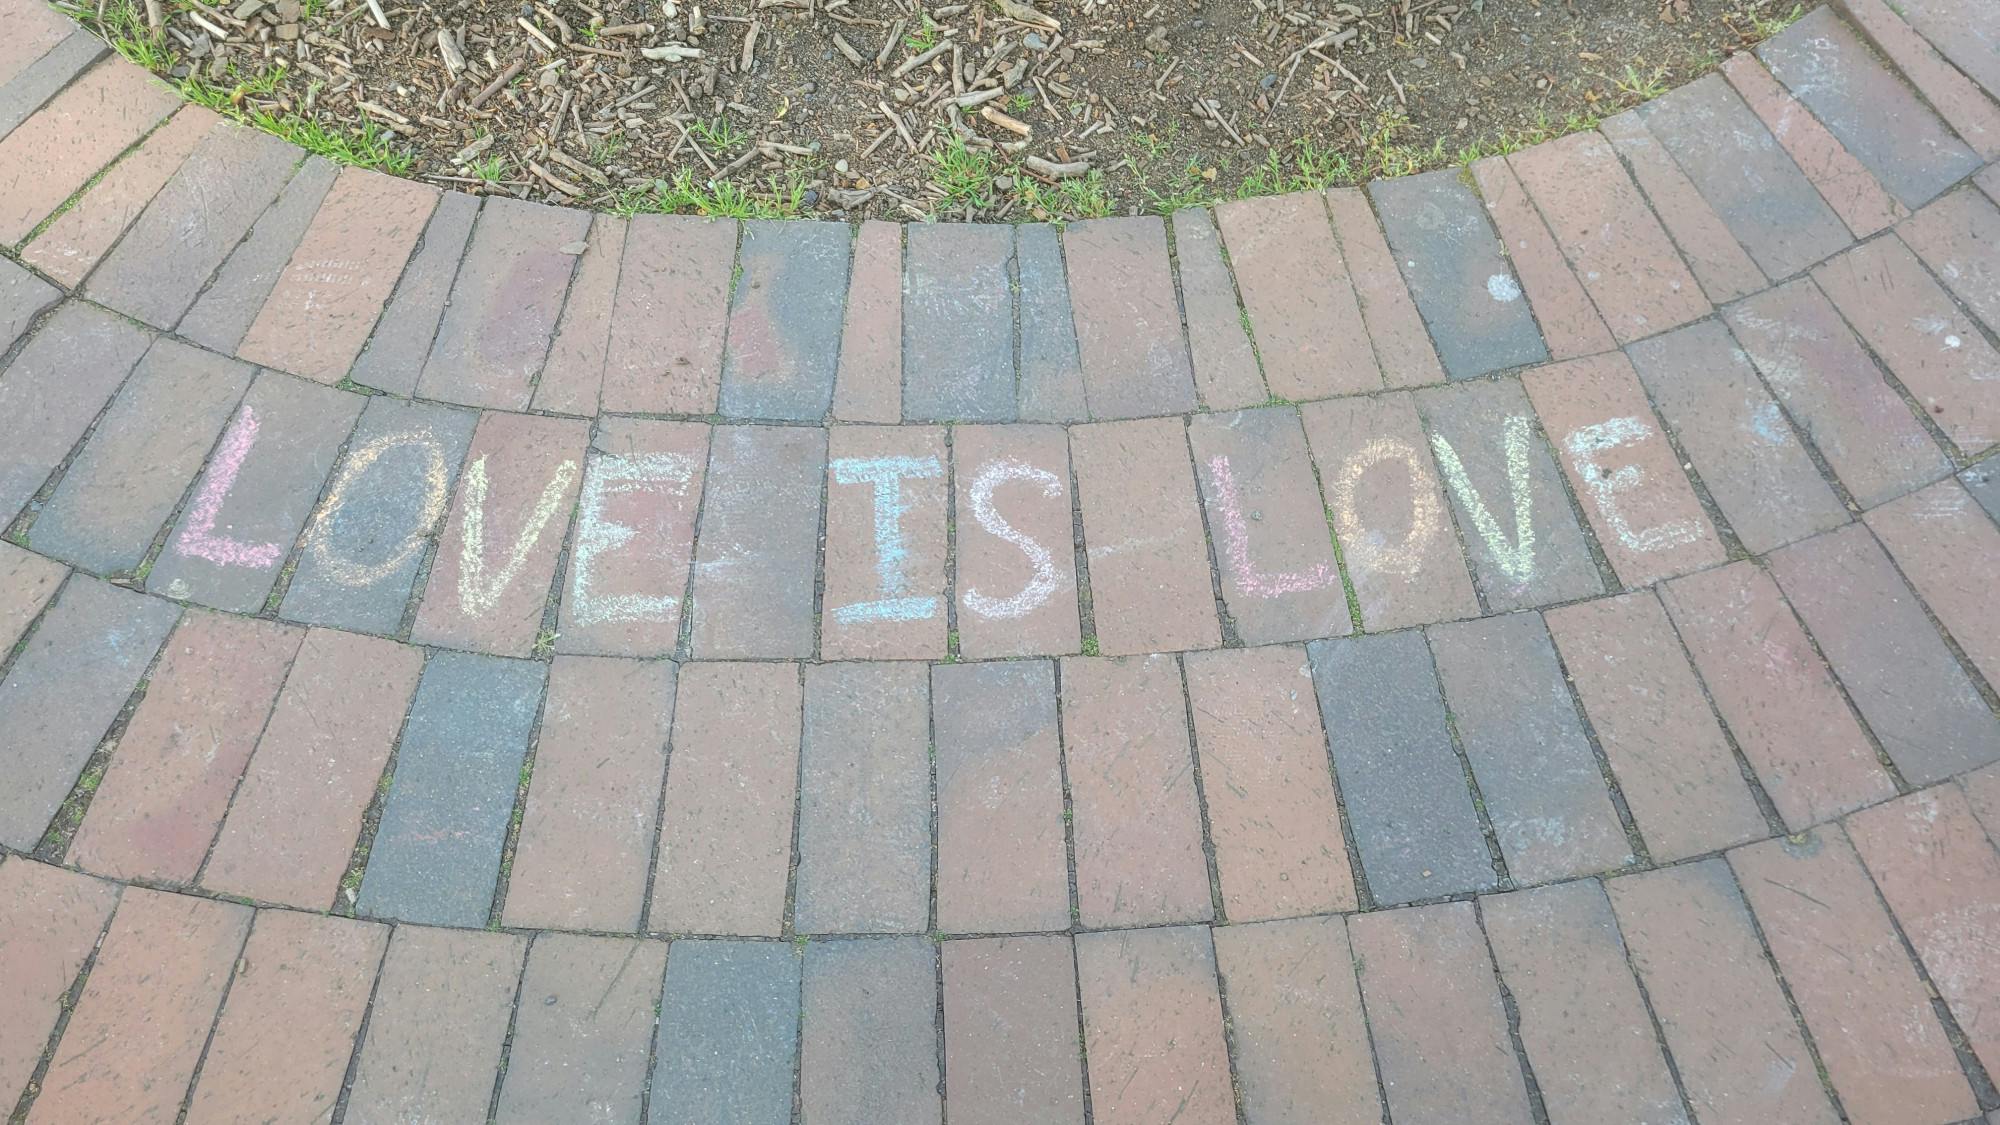 LOVE IS LOVE